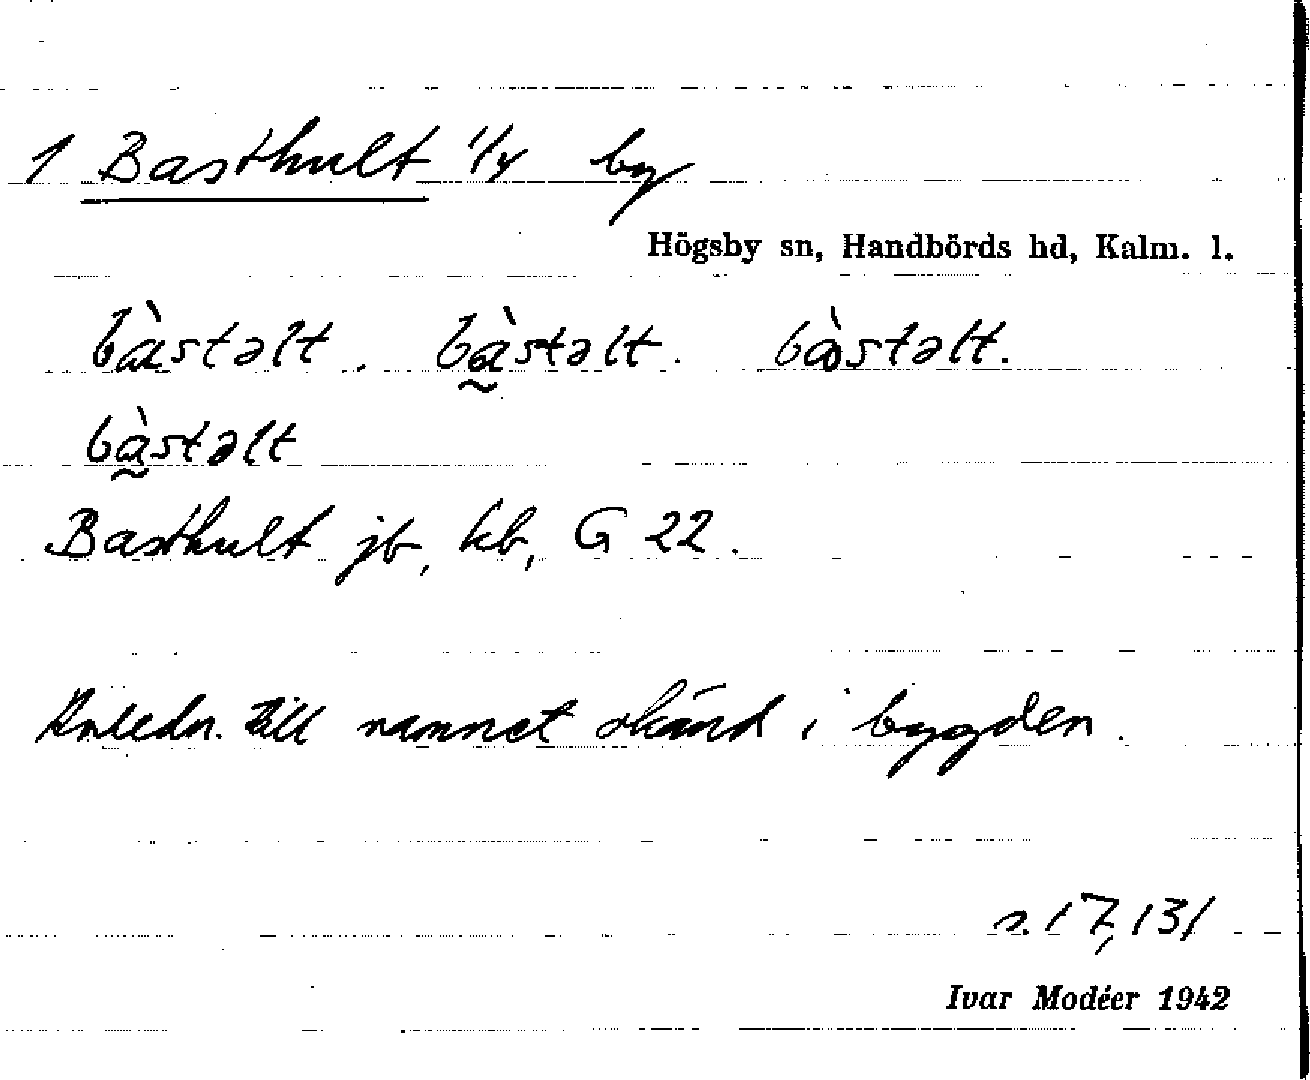 1 Basthult 1/4 by
Högsby sn, Handbörds hd, Kalm. l.
bàstəlt. bà̰stəlt. bòstəlt.
bà̰stəlt
Basthult jb, kb, G 22.
Anledn. till namnet okänd i bygden.
s. 17, 131
Ivar Modéer 1942